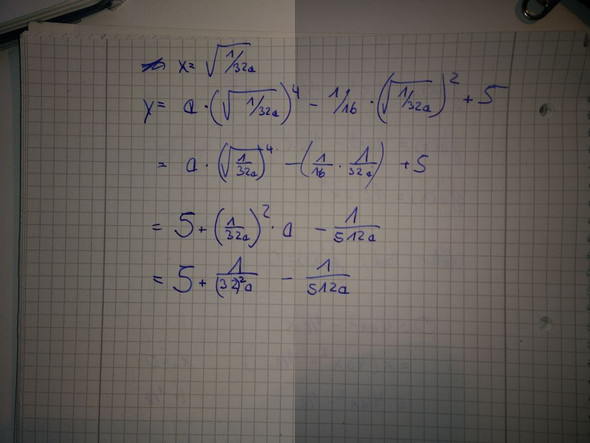 x = √(1/32a)
y = a · (√(1/32a))⁴ - 1/16 · (√(1/32a))² + 5
= a · (√(1/32a))⁴ - (1/16 · 1/32a) + 5
= 5 + (1/32a)² · a - 1/512a
= 5 + 1/(32)²a - 1/512a